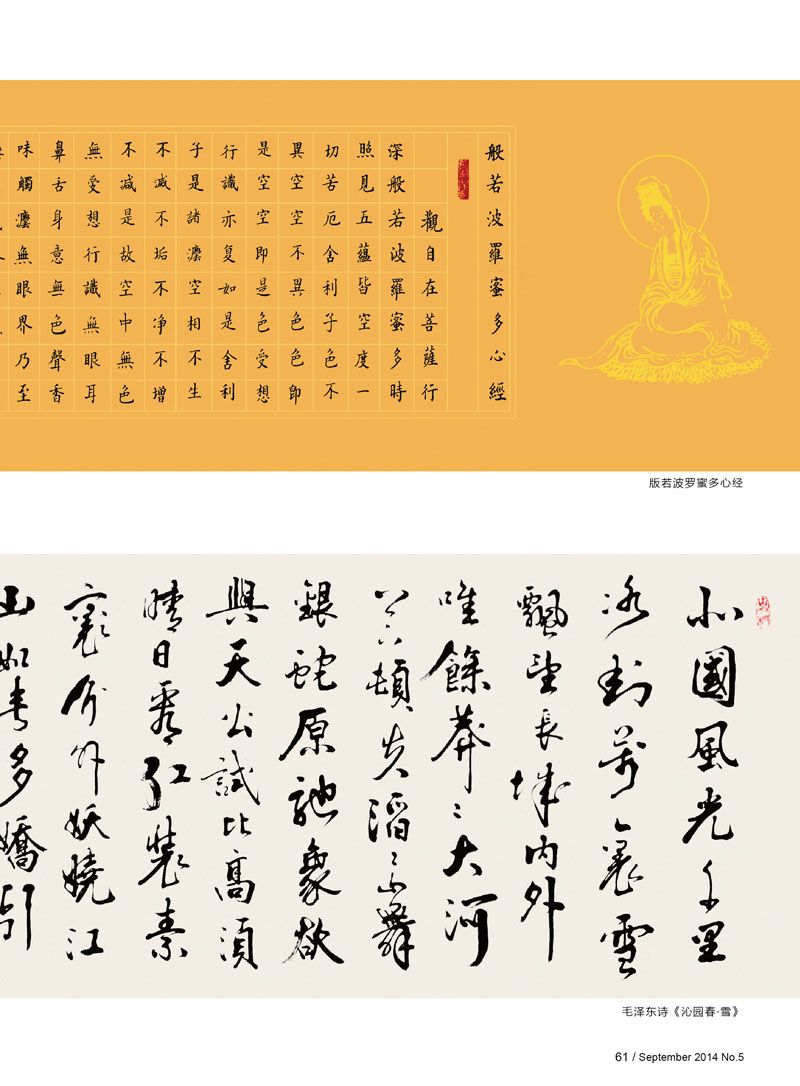 般若波羅蜜多心經
觀自在菩薩行
深般若波羅蜜多時
照見五蘊皆空度一
切苦厄舍利子色不
異空空不異色色即
是空空即是色受想
行識亦复如是舍利
子是諸灋空相不生
不滅不垢不净不增
不减是故空中無色
無受想行識無眼耳
鼻舌身意無色聲香
味觸灋無眼界乃至
版若波罗蜜多心经
北國風光千里
冰封萬裏雪
飄望長城内外
唯餘莽〻大河
上下頓失滔〻山舞
銀蛇原馳象欲
與天公試比高須
晴日看紅裝素
裹分外妖嬈江
山如此多嬌引
毛泽东诗《沁园春·雪》
61 / September 2014 No.5